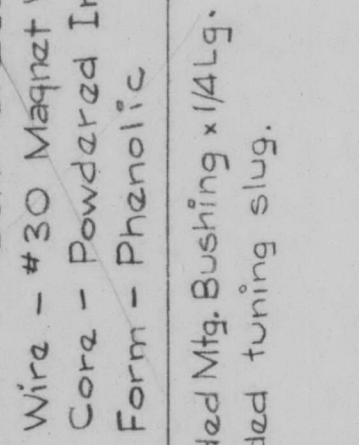 Wire - #30 Magnet
Core - Powdered
Form - Phenolic
Mtg. Bushing x 1/4 Lg.
tuning slug.